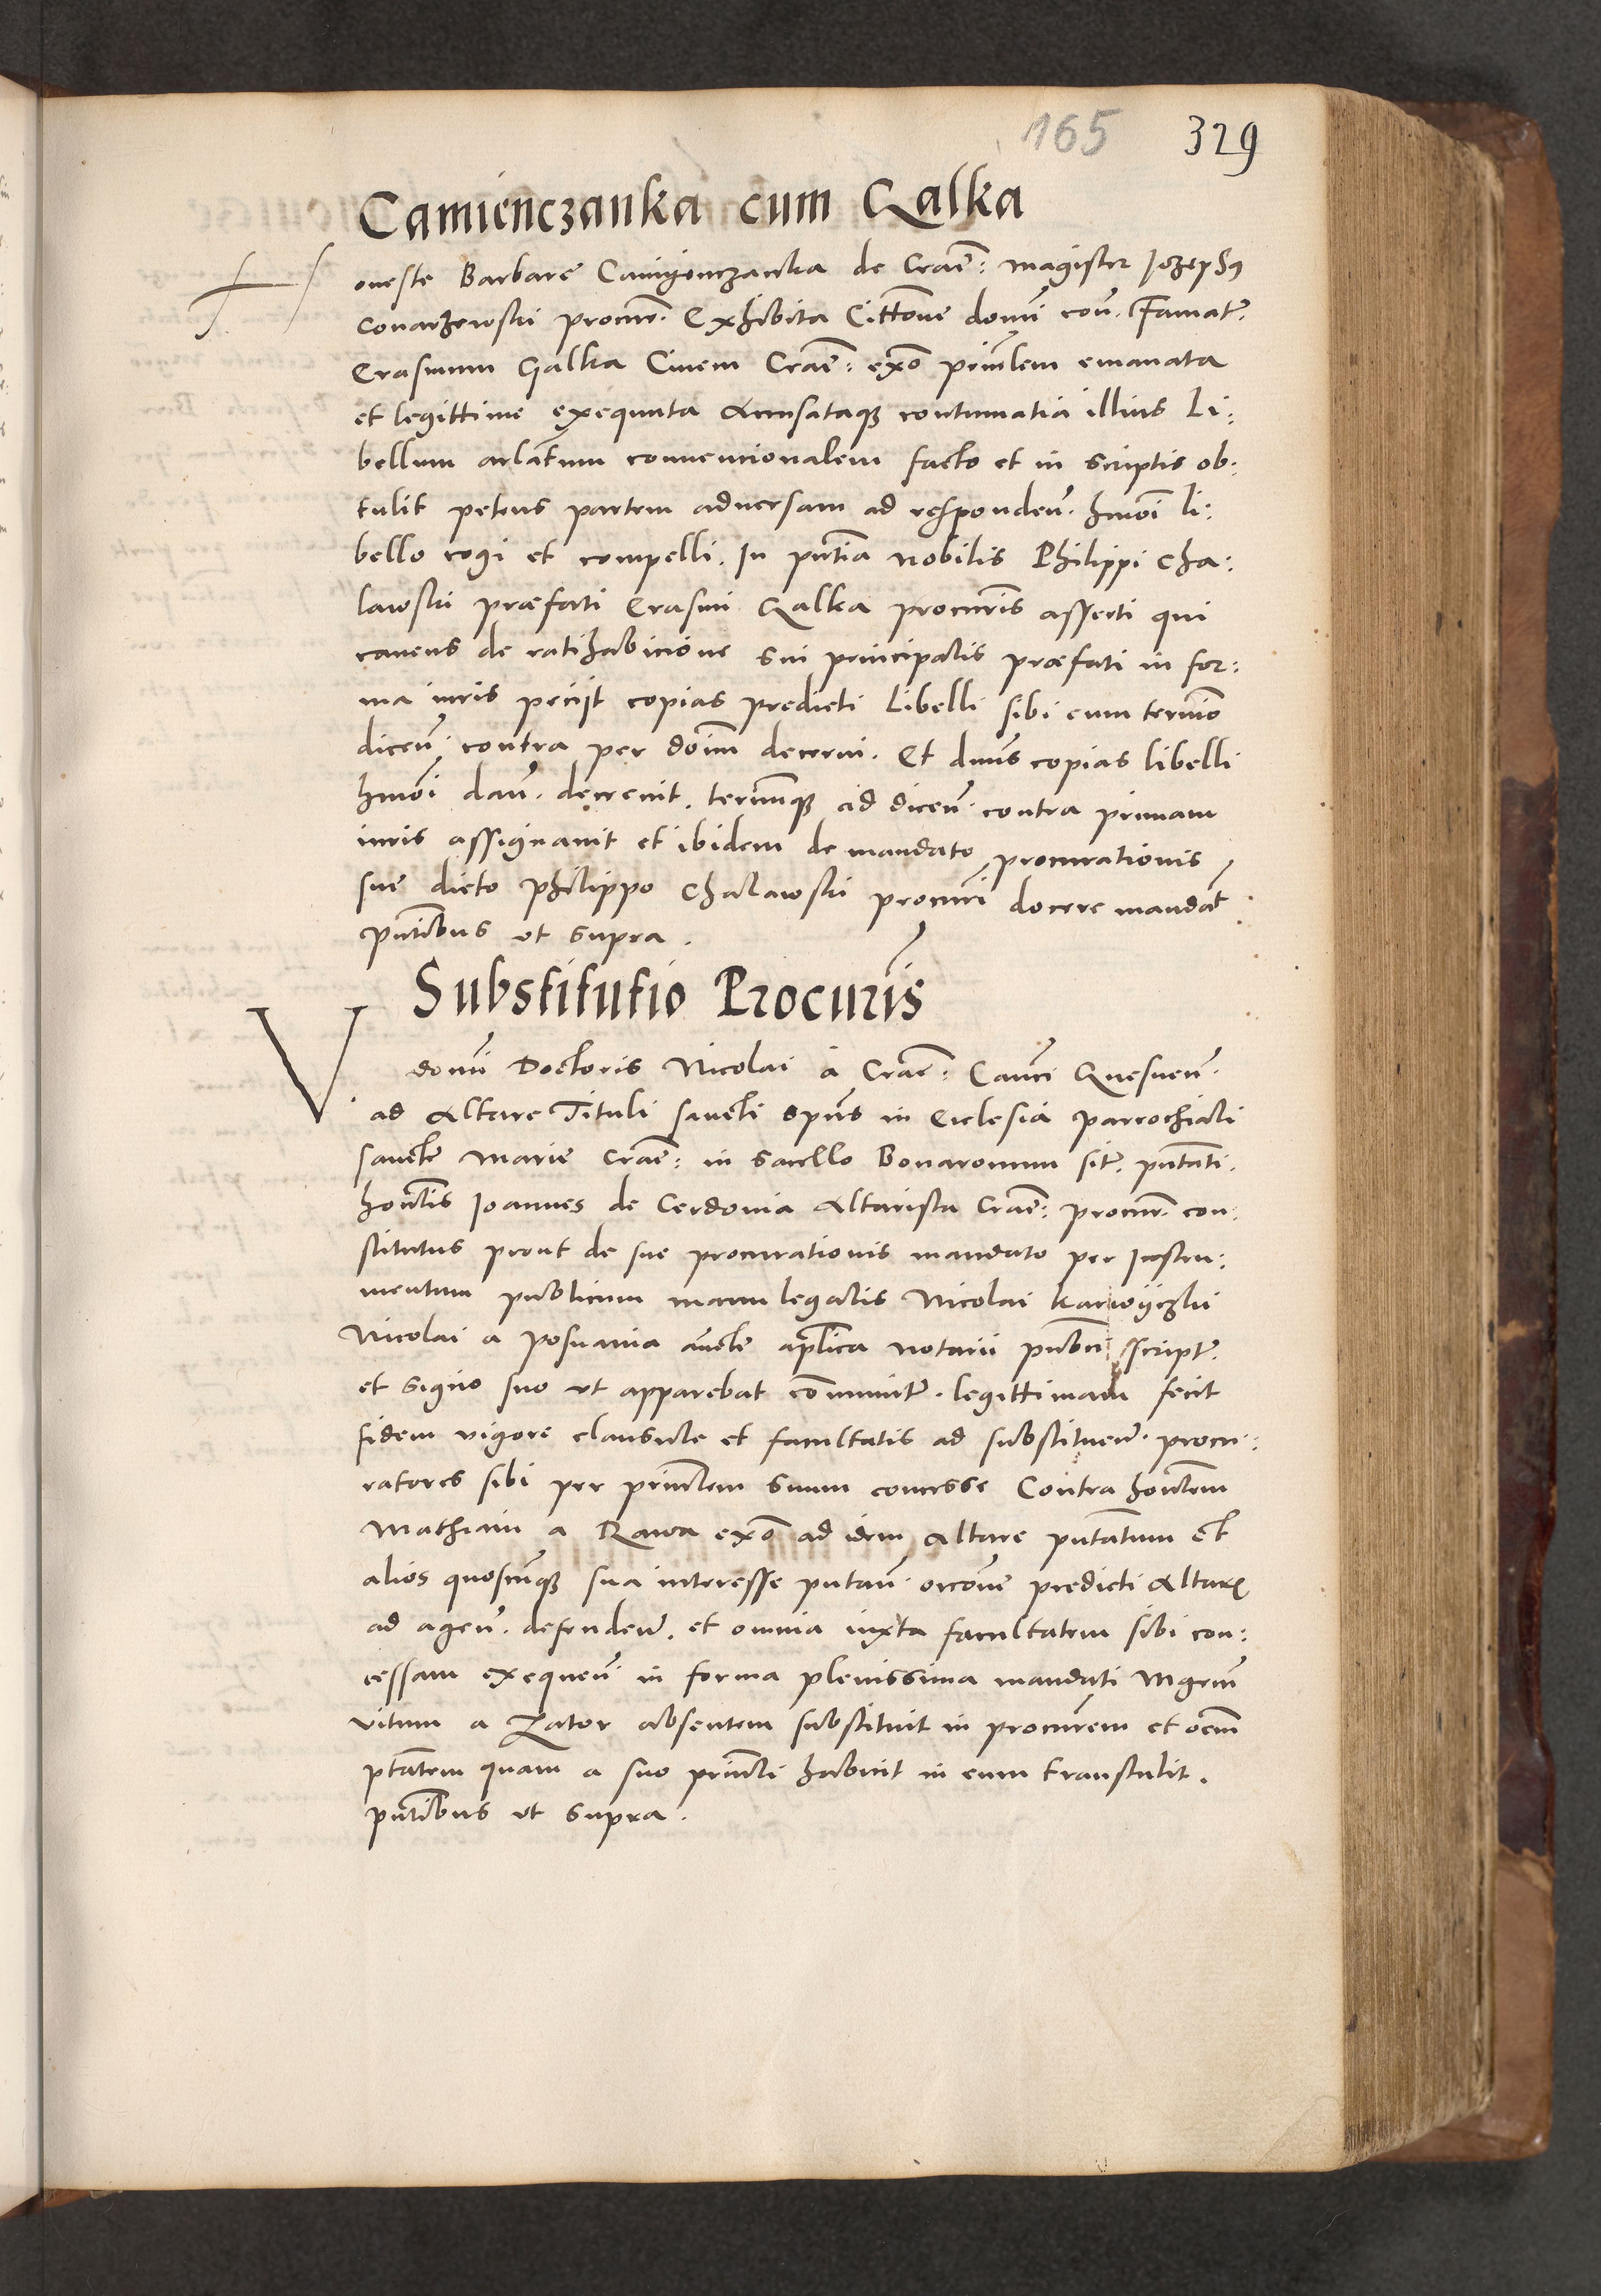 165 329
Camienczanka cum Galka
Honeste Barbare Camyenczanka de Crac͞: magister Jozephus
Conarzewski procur͞. Exhibita Citt͞one dom͞i con͞. Famat͞.
Erasmum Galka Civem Crac͞: ex͞o prin͞lem emanata
et legittime exequuta Accusataq; contumatia illius Li:
bellum arlatum convencionalem facto et in scriptis ob:
tulit petens partem adversam ad responden͞. hmo͞i li:
bello cogi et compelli. In pn͞tia nobilis Philippi Cha:
lawski præfati Erasmi Galka procur͞is asserti qui
cavens de ratihabicione sui principalis præfati in for:
ma iuris peciit copias predicti Libelli sibi cum termi͞o
dicen͞. contra per do͞im decerni. Et d͞nus copias libelli
hmo͞i dan͞. decrevit. termi͞umq; ad dicen͞. contra primam
iuris assignavit et ibidem de mandato procurationis
sue dicto Philippo Chalawski procur͞i docere mandat͞
pn͞tibus ut supra.
Substitutio Procur͞is
V. dom͞i Doctoris Nicolai a Crac͞: Can͞ci Gnesnen͞.
ad Altare Tituli sancti Sp͞us in Ecclesia parrochiali
sancte Marie Crac͞: in sacello Bonaronum sit͞. pn͞tati.
hon͞lis Joannes de Cerdonia Altarista Crac͞: procur͞. con:
stitutus prout de sue procurationis mandato per Instru:
mentum publicum manu legalis Nicolai
Nicolai a Posnania auct͞e ap͞lica notarii pub͞ci script͞.
et signo suo ut apparebat com͞unit͞. legittimam fecit
fidem vigore clausule et facultatis ad substituen͞. procu:
ratores sibi per prin͞lem suum concesse Contra hon͞lem
Mathiam a Rawa ex͞o ad idem Altare pn͞tatum Et
alios quoscu͞q; sua interesse putan͞. occ͞one predicti Altaris
ad agen͞. defenden͞. et omnia iuxta facultatem sibi con:
cessam exequen͞. in forma plenissima mandati Mgr͞um
Vitum a Zator absentem substituit in procur͞em et o͞em
pt͞atem quam a suo prin͞li habuit in eum transtulit.
pn͞tibus ut supra.